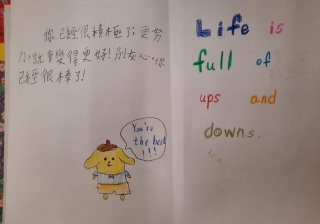 你已經很積極了;更努
力就會變得更好!別灰心,你
已經很棒了!
You're
the best
!!!
Life is
full of
ups and
downs.